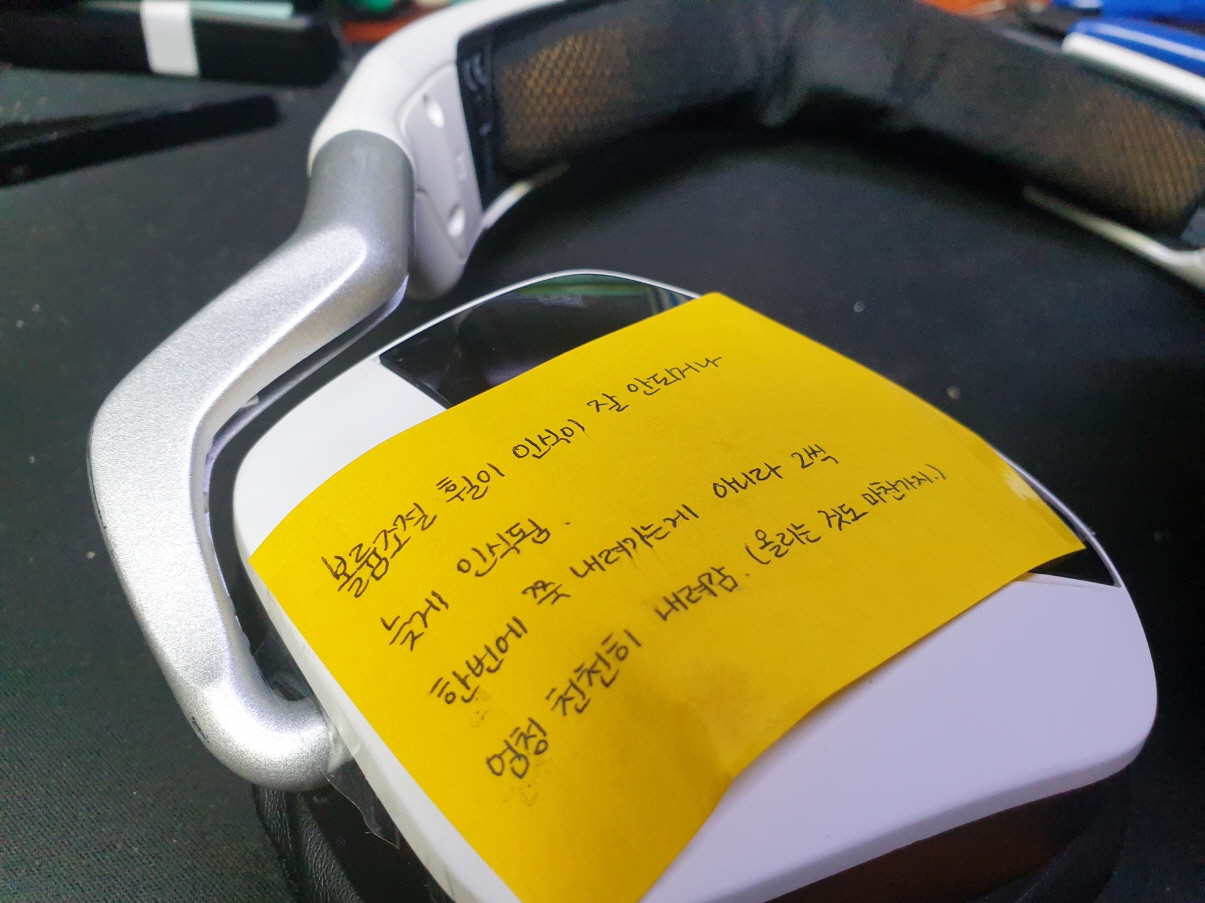 볼륨조절 휠이 인식이 잘 안되거나
늦게 인식됨.
한번에 쭉 내려가는게 아니라 2씩
엄청 천천히 내려감. (올리는 것도 마찬가지.)